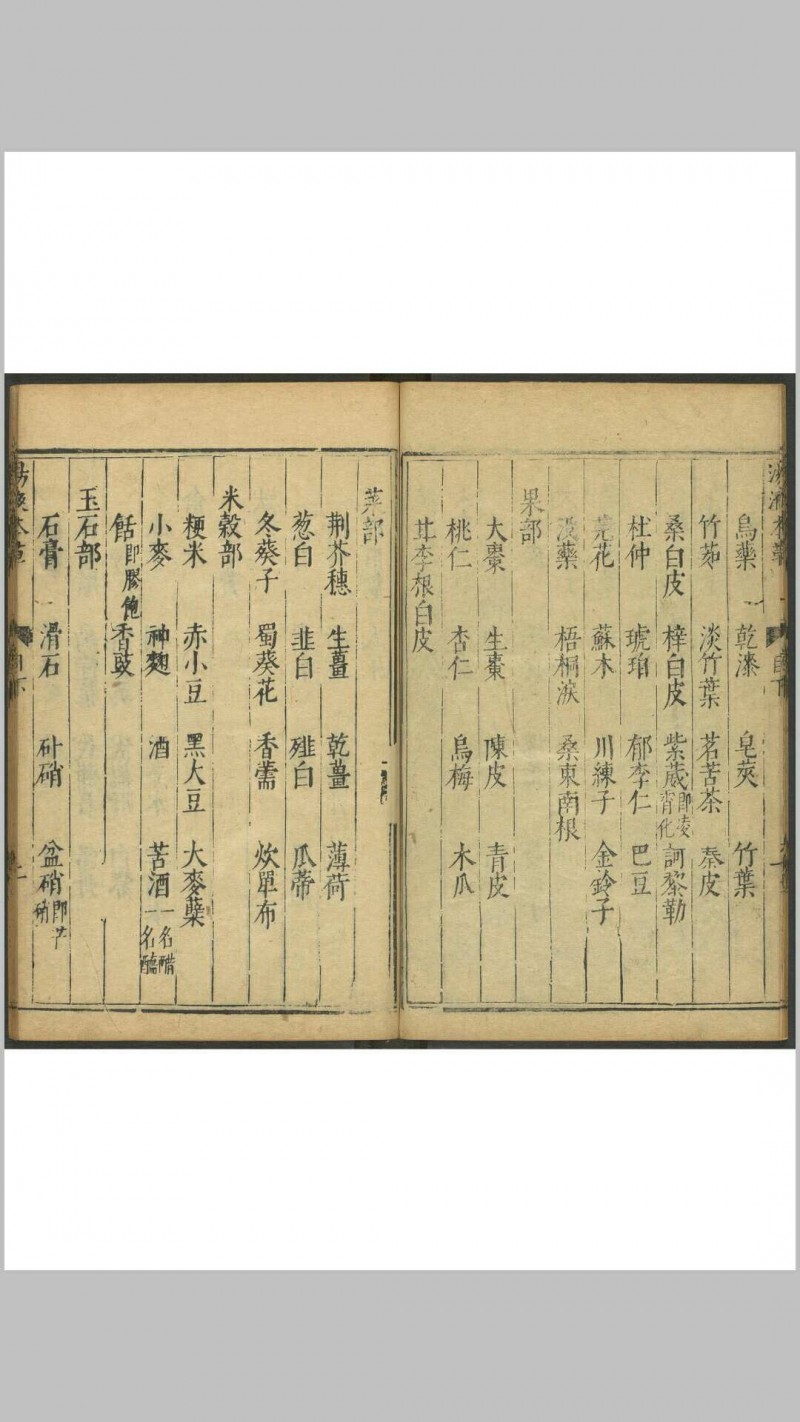 烏藥 乾漆 皂莢 竹葉
竹茹 淡竹葉 茗苦茶 秦皮
桑白皮 梓白皮 紫葳即凌霄化 訶黎勒
杜仲 琥珀 郁李仁 巴豆
芫花 蘇木 川練子 金鈴子
沒藥 梧桐淚 桑東南根
果部
大棗 生棗 陳皮 青皮
桃仁 杏仁 烏梅 木瓜
李根白皮
菜部
荆芥穗 生薑 乾薑 薄荷
葱白 韭白 薤白 瓜蒂
冬葵子 蜀葵花 香薷 炊單布
米穀部
粳米 赤小豆 黑大豆 大麥蘗
小麥 神麴 酒 苦酒一名醋一名醯
飴即膠飴 香豉
玉石部
石膏 滑石 朴硝 盆硝即芒硝
湯液本草